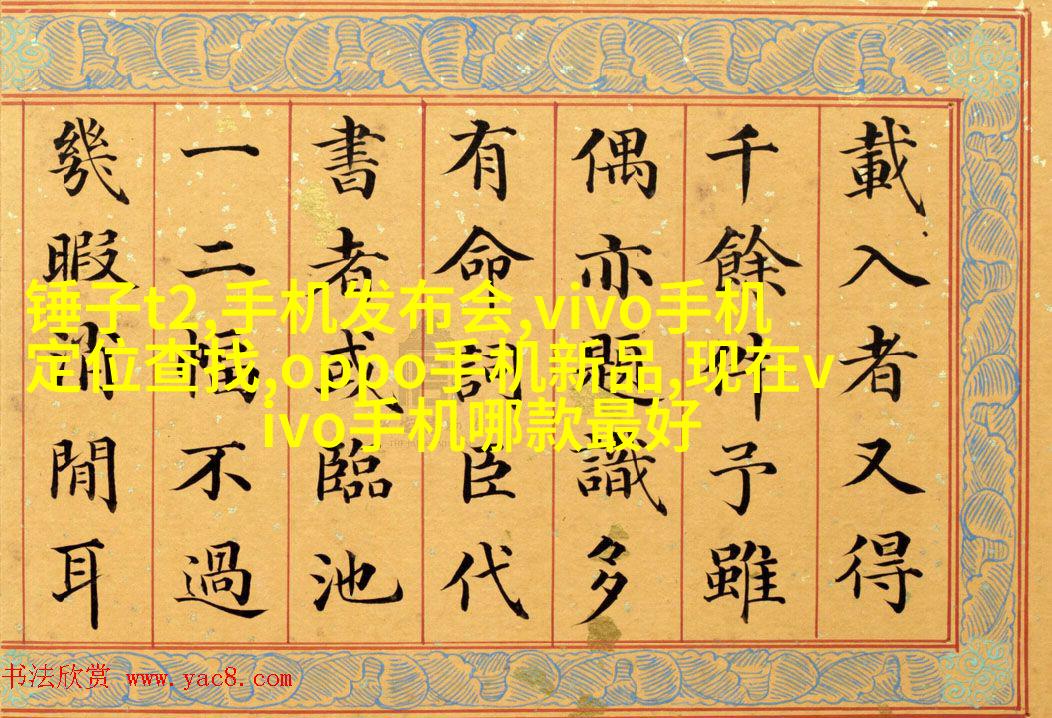 載入者又得
千餘件予雖
偶亦題識多
有命詞臣代
書者或臨池
一二幅不過
幾暇消閒耳
锤子t2,手机发布会,vivo手机
定位查找,oppo手机新品,现在v
ivo手机哪款最好
书法欣赏 www.yac8.com